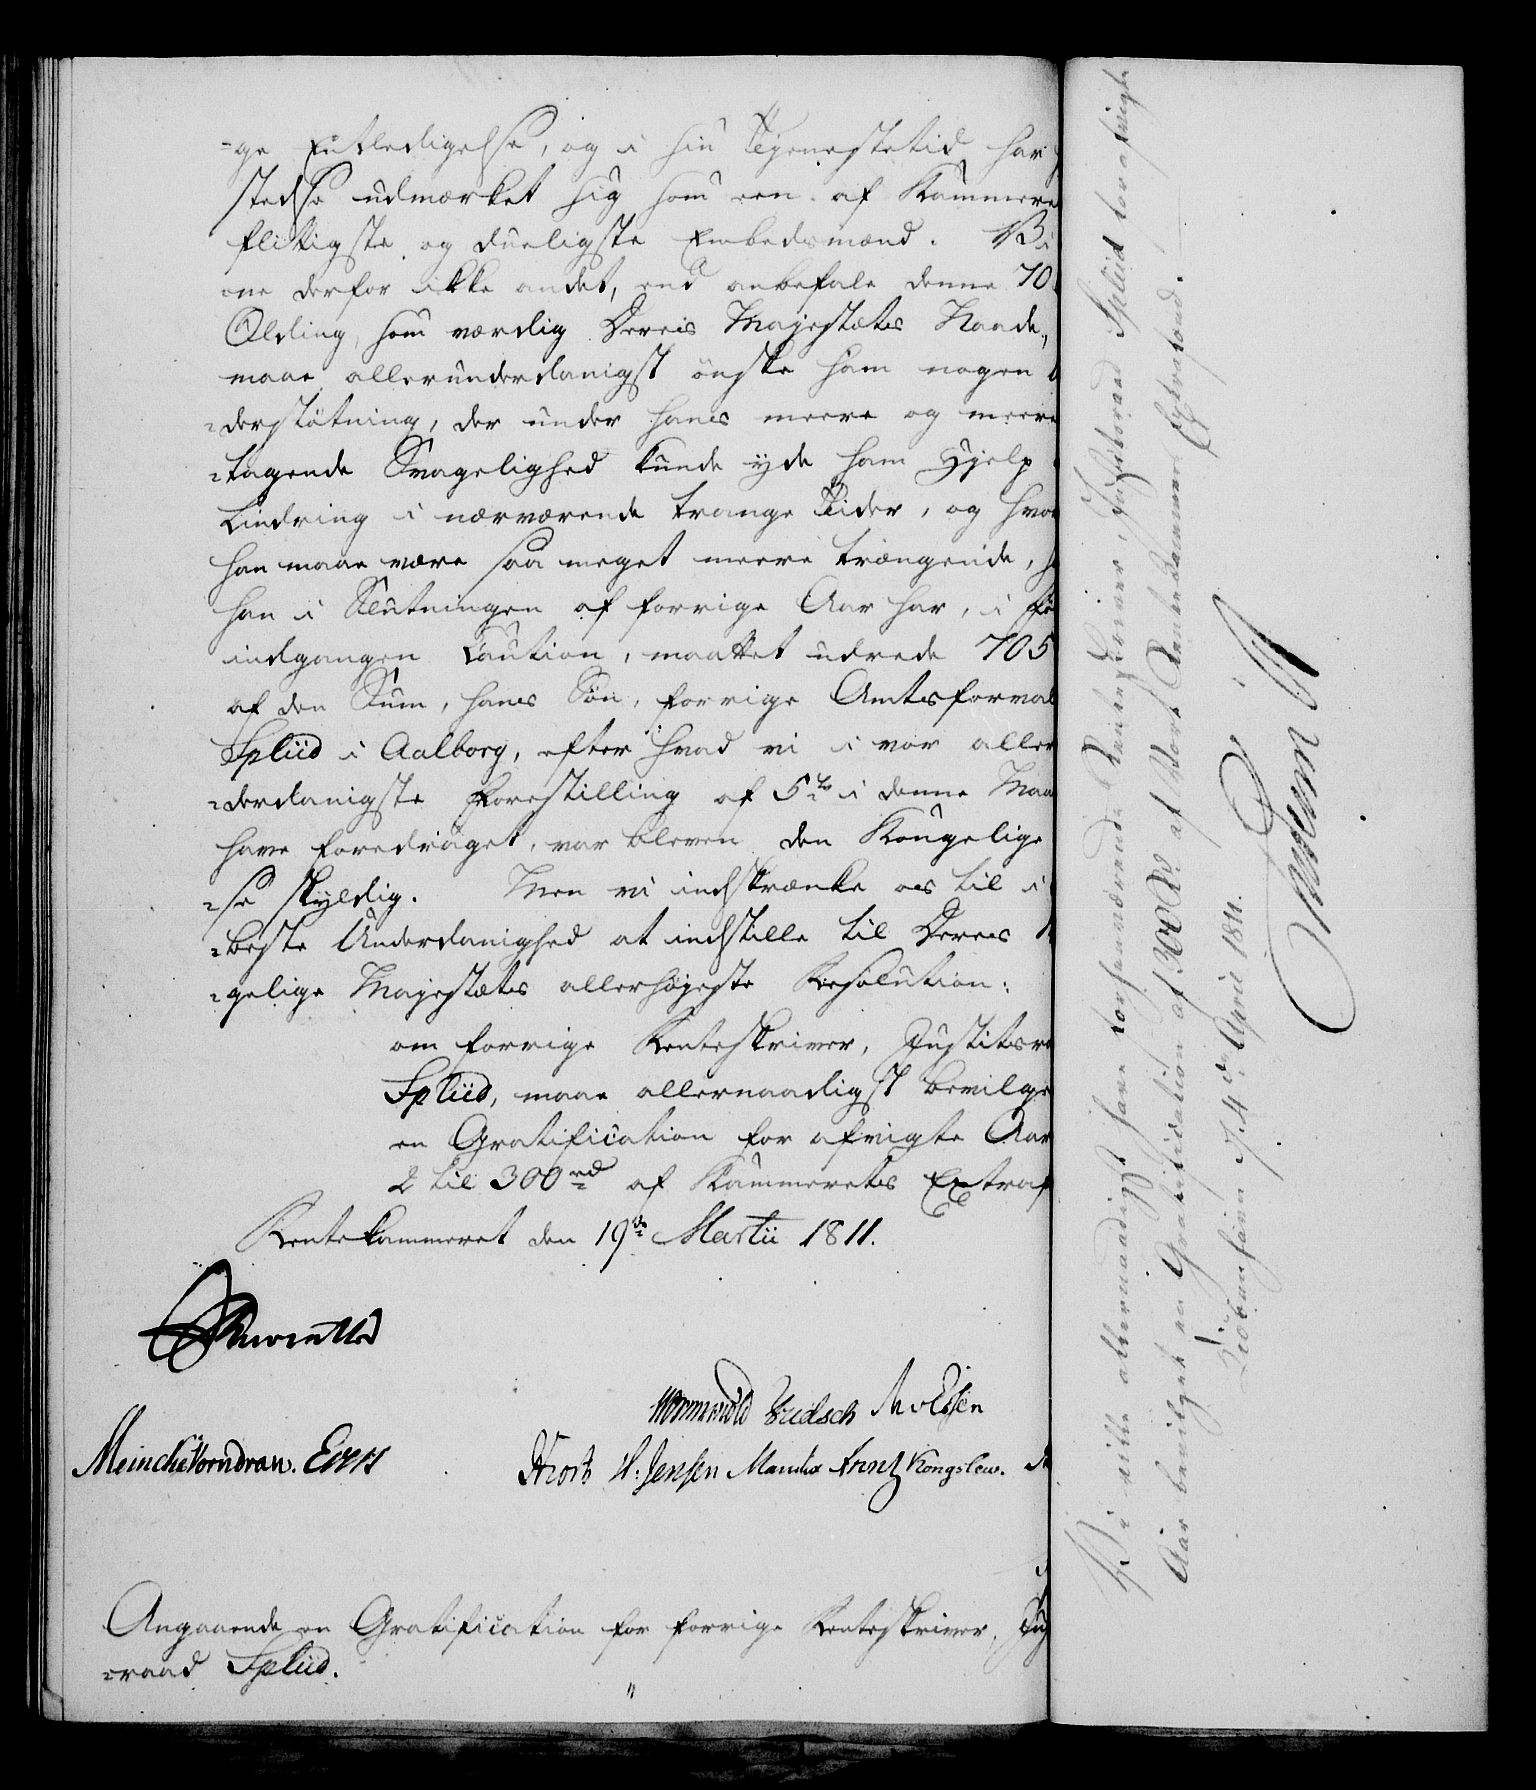 -ge Entledigelse, og i sin Tjenestetid har
stedse udmærket sig som een af Kammere
flittigste og dueligste Embedsmænd. Vi
one derfor ikke andet, end anbefale denne 70
Olding, som værdig Deres Majestæts Naade,
maae allerunderdanigst ønske ham nogen
-derstøtning, der under hans meere og meere
-tagende Svagelighed kunde yde ham Hjelp
Lindring i nærværende trange Tider, og hvor
han maae være saa meget meere trængende,
han i Slutningen af forrige Aar har, i
indgangen Caution, maattet udrede 705
af den Sum, hans Søn, forrige Amtsforval
Spliid i Aalborg, efter hvad vi i vor aller
-derdanigste Forestilling af 5te i denne Maa
have foredraget, var bleven den Kongelige
-se skyldig. Men vi indskrænke os til i
-beste Underdanighed at indstille til Deres
-gelige Majestæts allerhøjeste Resolution:
om forrige Renteskriver, Justitsra
Spliid, maae allernaadigst bevilge
en Gratification for afvigte Aar
2 til 300 rd af Kammerets Extraf
Rentekammeret den 19de Martii 1811.
Reventlow
Wormskiold Knudsen
Meincke Vorndran. Evers
Hiort H: Jensen Manthe Frentz Kongslew.
Angaaende en Gratification for forrige Renteskriver, Ju
-raad Spliid.
Vi ville allernaadigst have forhenværende Renteskriver, Justitsraad Spliid for afvigte
Aar bevilget en Gratification af 300 Rd af Vort Rentekammers Extrafond.
Kiøbenhavn d. 4de April 1811.
Frederik R